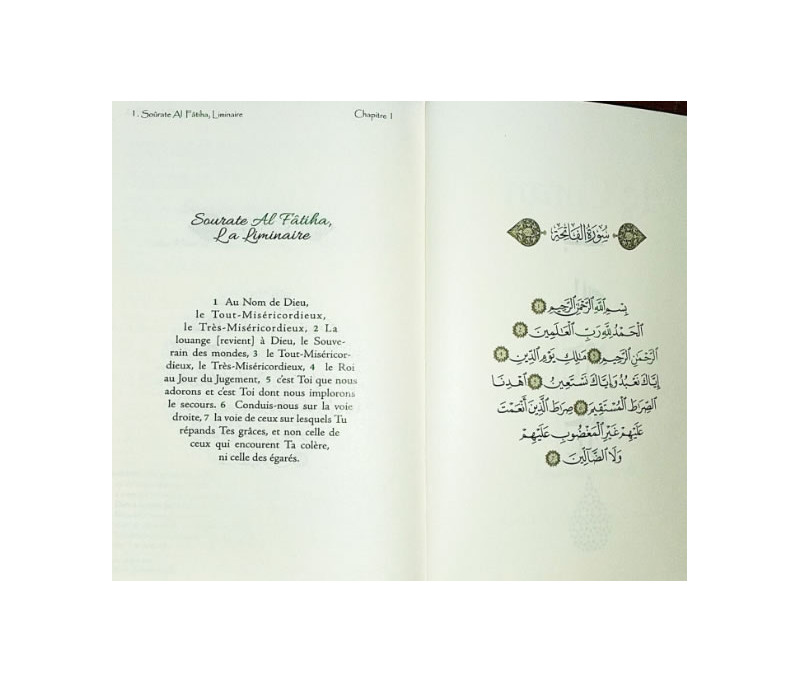 1. Soûrate Al Fâtiha, Liminaire
Chapitre 1
Sourate Al Fâtiha,
La Liminaire
1 Au Nom de Dieu,
le Tout-Miséricordieux,
le Très-Miséricordieux, 2 La
louange [revient] à Dieu, le Souve-
rain des mondes, 3 le Tout-Miséricor-
dieux, le Très-Miséricordieux, 4 le Roi
au Jour du Jugement, 5 c'est Toi que nous
adorons et c'est Toi dont nous implorons
le secours. 6 Conduis-nous sur la voie
droite, 7 la voie de ceux sur lesquels Tu
répands Tes grâces, et non celle de
ceux qui encourent Ta colère,
ni celle des égarés.
سُورَةُ الفَاتِحَةِ
بِسْمِ ٱللَّهِ ٱلرَّحْمَٰنِ ٱلرَّحِيمِ ١
ٱلْحَمْدُ لِلَّهِ رَبِّ ٱلْعَٰلَمِينَ ٢
ٱلرَّحْمَٰنِ ٱلرَّحِيمِ ٣ مَٰلِكِ يَوْمِ ٱلدِّينِ ٤
إِيَّاكَ نَعْبُدُ وَإِيَّاكَ نَسْتَعِينُ ٥ ٱهْدِنَا
ٱلصِّرَٰطَ ٱلْمُسْتَقِيمَ ٦ صِرَٰطَ ٱلَّذِينَ أَنْعَمْتَ
عَلَيْهِمْ غَيْرِ ٱلْمَغْضُوبِ عَلَيْهِمْ
وَلَا ٱلضَّآلِّينَ ٧